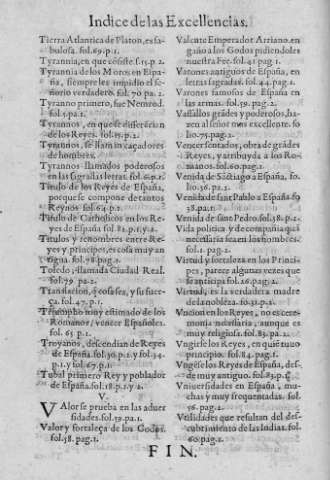 Indice de las Excellencias.
Tierra Atlantica de Platon, es fa-
bulosa. fol.69.p.1.
Tyrannia, en que cõsiste. f.15.p.2.
Tyrannia de los Moros en Espa-
ña, siempre les impidio el se-
ñorio verdadero. fol. 70 pa.2.
Tyranno primero, fue Nemrod.
fol.5.pa.1.
Tyrannos, en que se differẽcian
de los Reyes. fol.15.p.2.
Tyrannos, se llamã caçadores
de hombres.
Tyrannos llamados poderosos
en las sagradas letras. fol.6.p.1.
Titulo de los Reyes de España,
porque se compone de tantos
Reynos fol 64.p.1.
Titulo de Catholicos en los Re-
yes de España fol 82.p.1.y.2.
Titulos y renombres entre Re-
yes y principes, es cosa muy an
tigua. fol.78.pag.1.
Toledo, llamada Ciudad Real.
fol.79 pa.2.
Translacion, q̃ cosa es, y su fuer-
ça. fol.47.p.1.
Triumpho muy estimado de los
Romanos, vence Españoles.
fol. 65.p.1.
Troyanos, descendian de Reyes
de España. fol.30.p.1.y fol.34.
p.1.y fol.67.p.1.
Tubal primero Rey y poblador
de España. fol.18.p.1.y.2.
V.
VAlor se prueba en las aduer
sidades. fol.59.pa.1.
Valor y fortaleça de los Godos.
fol.58.pag.1.
Valente Emperador Arriano. en
gaño a los Godos pidiendoles
nuestra Fee. fol.41 pag 1.
Varones antiguos de España, en
letras sagradas. fol.44.pag.1.
Varones famosos de España en
las armas. fol.59.pag.2.
Vassallos grãdes y poderosos, ha-
zen al señor mas excellente. fo
lio.75.pag.2.
Vencer sentados, obra de grãdes
Reyes, y atribuyda a los Ro-
manos. fol.60.pag.1.
Venida de Sãctiago a España, fo.
lio.36.pa.1.
Venida de sant Pablo a España fo
38.pa.1.
Venida de sant Pedro. fol.38.p.2.
Vida politica y de compañia quã
necessaria sea en los hombres.
fol.1. pag.2.
Virtud y fortaleza en los Princi-
pes, parece algunas vezes que
se anticipa fol.26.pag.2.
Virtud, es la verdadera madre
de la nobleza. fo.32.p.1.
Vncion en los Reyes, no es cere-
monia necessaria, aunque es
muy religiosa. fol.83.pa.2.
Vngirse los Reyes, en quiẽ tuuo
principio. fol.84.pag.1.
Vngirse los Reyes de España, des-
de muy antiguo. fol.83.p.2
Vniuersidades en España, mu-
chas y muy frequentadas. fol.
56.pag.2.
Vtilidades que resultan del des-
cubrimiento de las Indias. fol.
60.pag.1.
FIN.